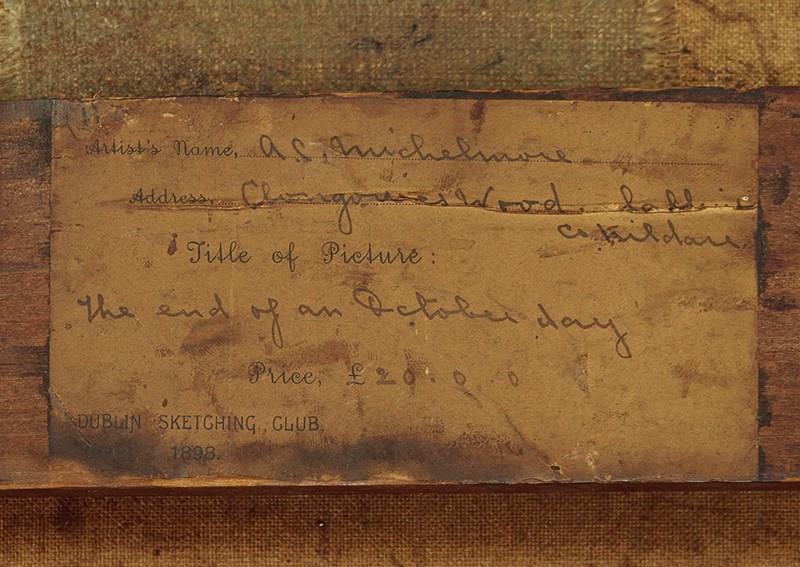 Artist's Name, A.C. Michelmore
Address, Clongowes Wood. Sallins
Co Kildare
Title of Picture:
The end of an October day
Price, £20.0.0
DUBLIN SKETCHING CLUB.
1898.